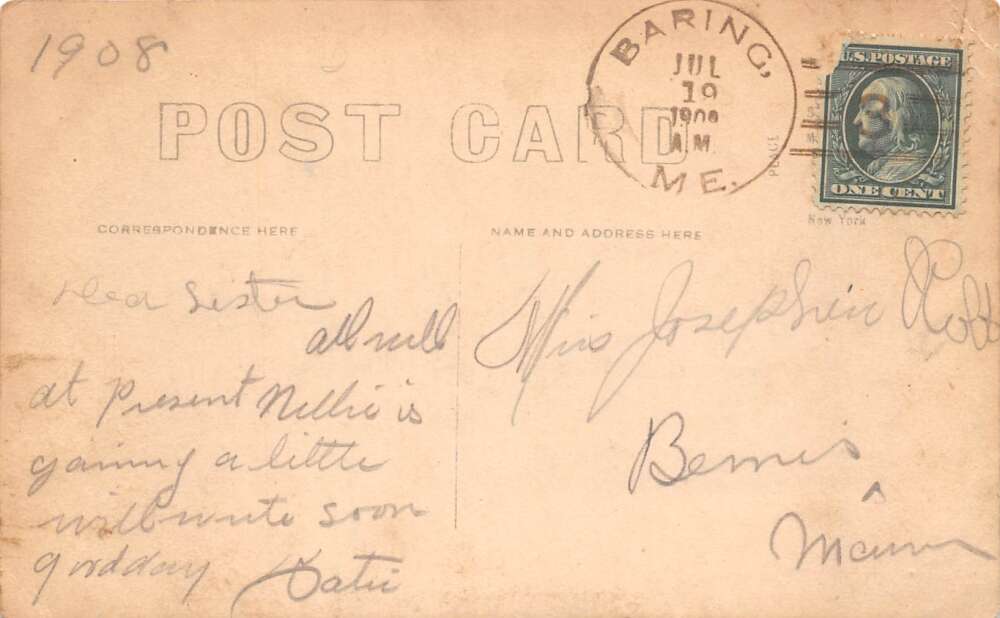 1908
BARING,
JUL
19
A.M.
ME.
U.S. POSTAGE
3
ONE CENT
POST CARD
PLACE
New York
CORRESPONDENCE HERE
NAME AND ADDRESS HERE
Dea Sister
all well
at Present Nellie is
gaining a little
will write soon
goodday Katie
Miss Josephien
Bemis